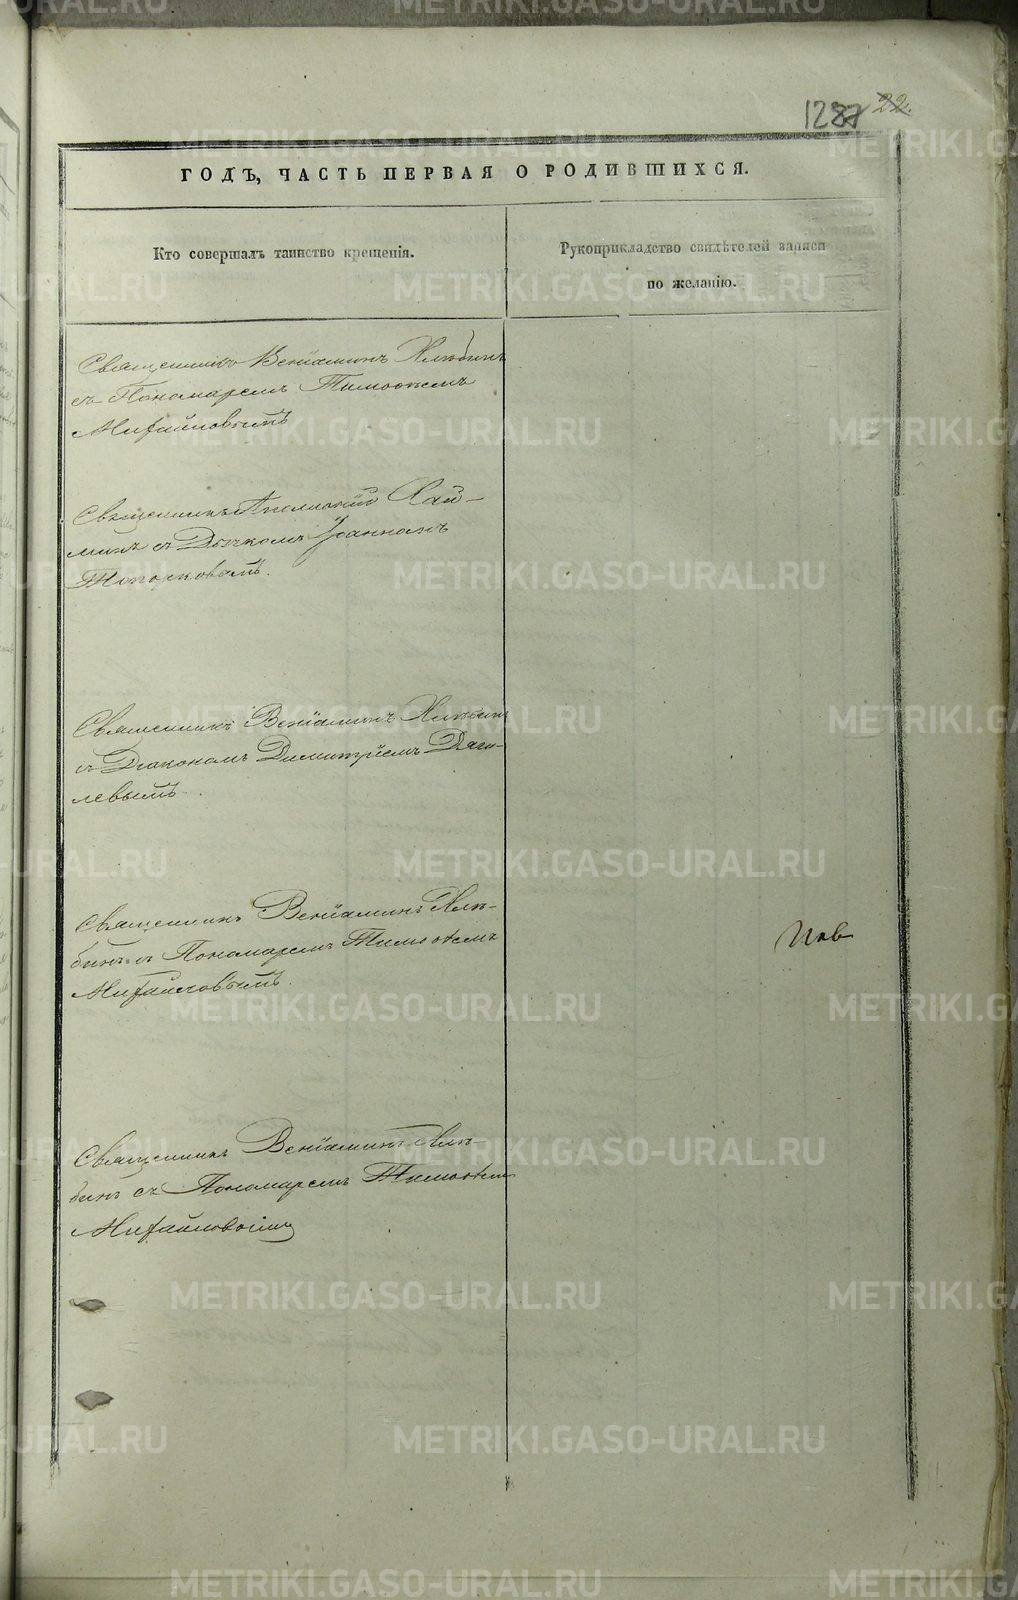 1287 22.
ГОДЪ, ЧАСТЬ ПЕРВАЯ О РОДИВШИХСЯ.
Кто совершалъ таинство крещенія.
Рукоприкладство свидѣтелей записи
по желанію.
Священникъ Веніаминъ Хлѣбинъ
съ Пономаремъ Тимоѳеемъ
Михайловымъ
Священникъ
съ Дьячкомъ Іоанномъ
Топорковымъ.
Священникъ Веніаминъ Хлѣбинъ
съ Діакономъ Димитріемъ Дяги-
левымъ.
Священникъ Веніаминъ Хлѣ-
бинъ съ Пономаремъ Тимоѳеемъ
Михайловымъ.
Священникъ Веніаминъ Хлѣ-
бинъ съ Пономаремъ Тимоѳеемъ
Михайловымъ
METRIKI.GASO-URAL.RU